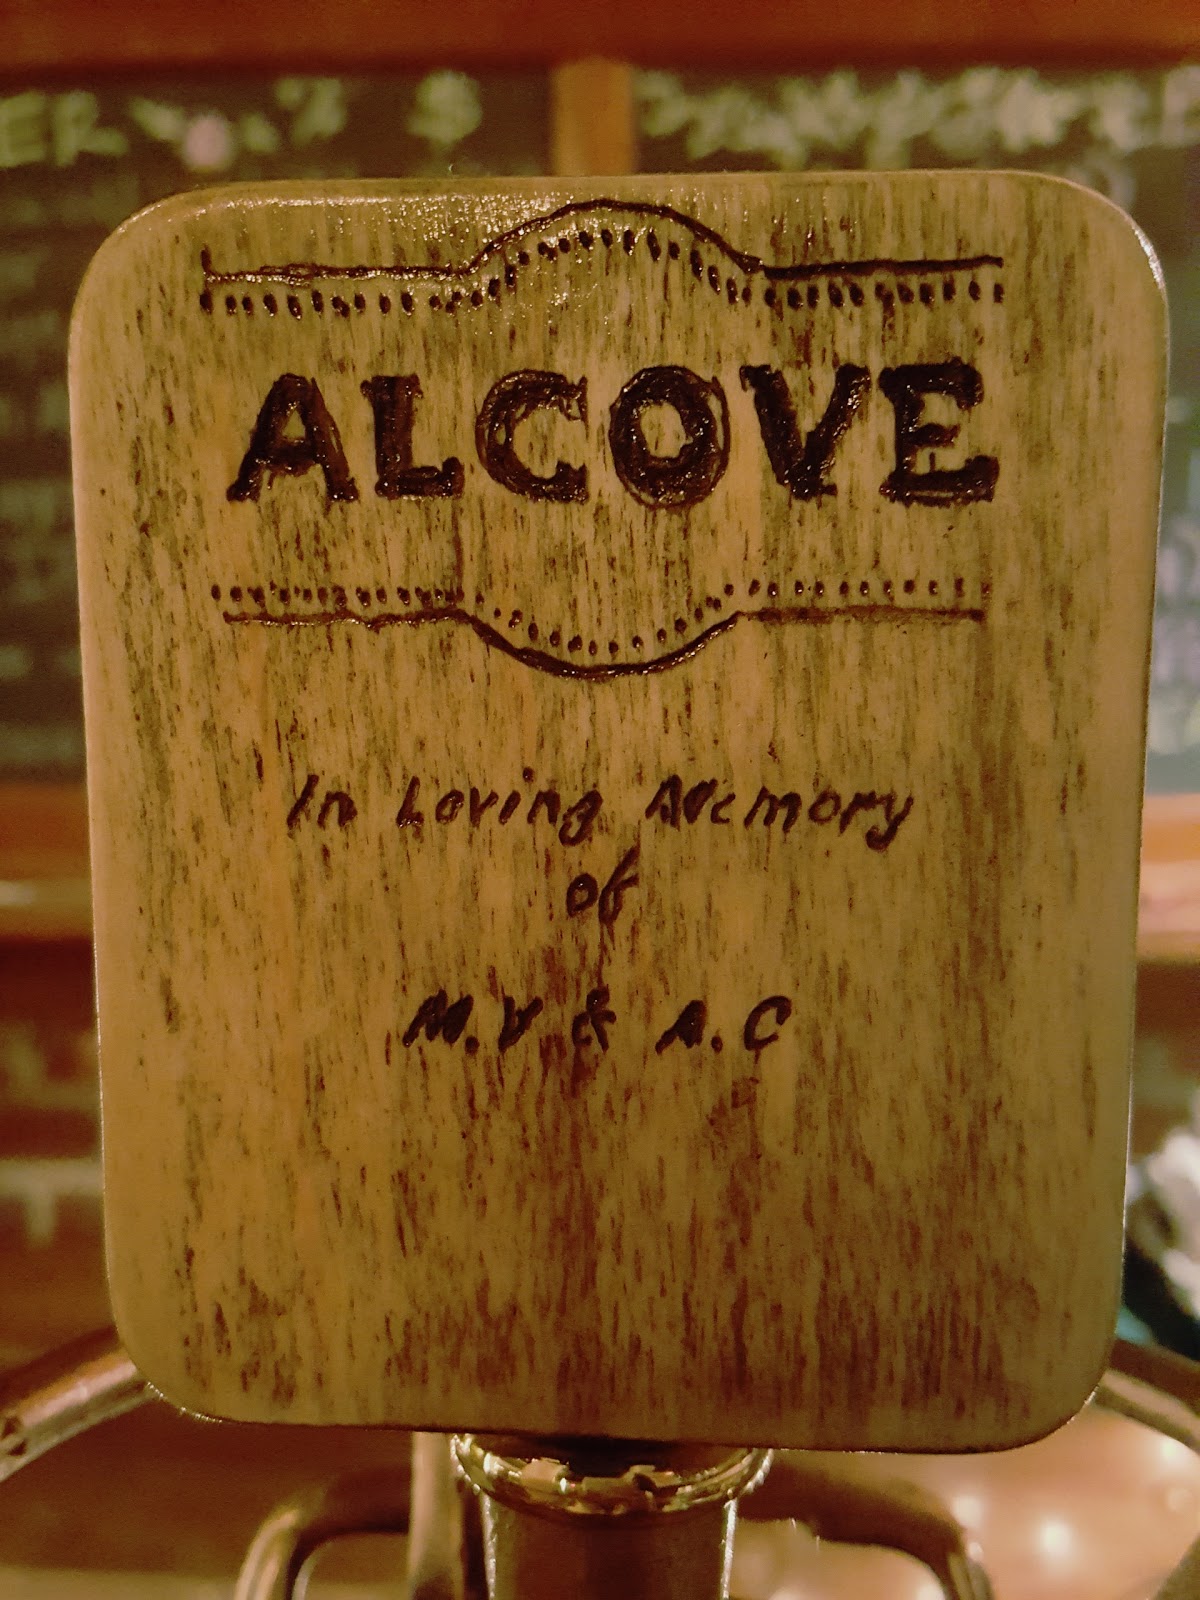 ALCOVE
In Loving Memory
of
M.V & A.C